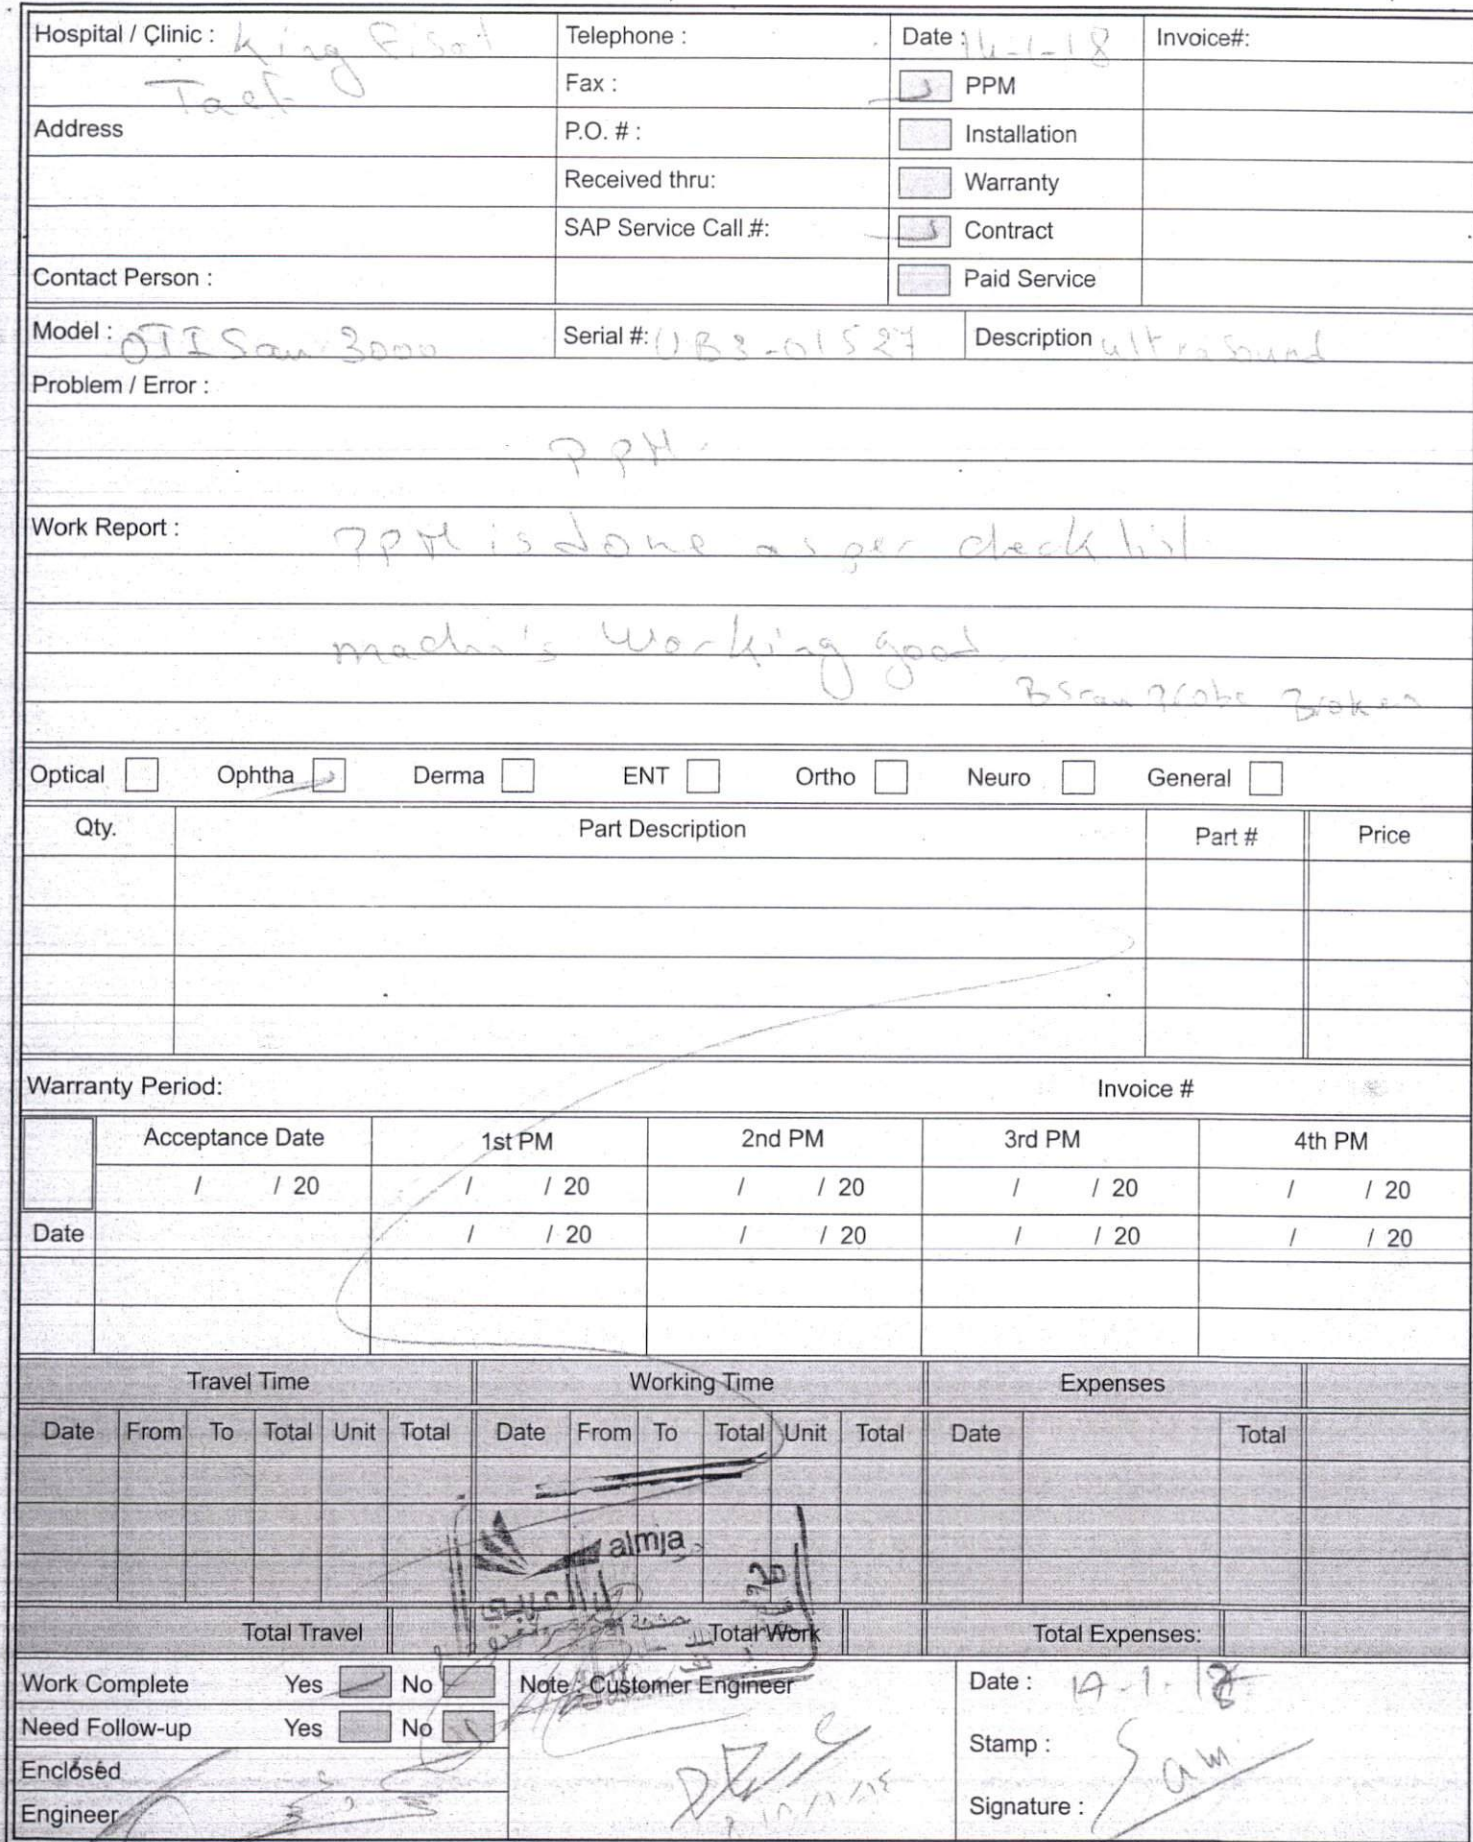 Hospital / Clinic : King Fisal Telephone : Date : 14-1-18 Invoice#:
Taef Fax : PPM
Address P.O. # : Installation
Received thru: Warranty
SAP Service Call #: Contract
Contact Person : Paid Service
Model : OTI Scan 3000 Serial #: UB3-01527 Description ultrasound
Problem / Error :
PPM
Work Report : PPM is done as per check list
working good
BScan Probe Broken
Optical Ophtha Derma ENT Ortho Neuro General
Qty. Part Description Part # Price
Warranty Period: Invoice #
Acceptance Date 1st PM 2nd PM 3rd PM 4th PM
/ / 20 / / 20 / / 20 / / 20 / / 20
Date / / 20 / / 20 / / 20 / / 20
Travel Time Working Time Expenses
Date From To Total Unit Total Date From To Total Unit Total Date Total
almja
العربي
Total Travel Total Work Total Expenses:
Work Complete Yes No Note : Customer Engineer Date : 14-1-18
Need Follow-up Yes No
Stamp :
Enclosed
Engineer Signature :